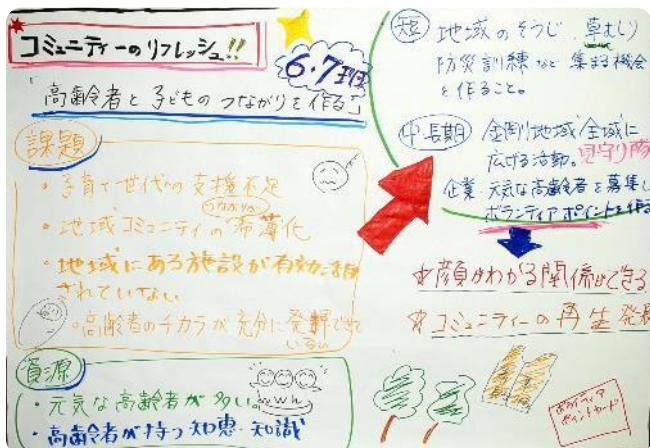 コミュニティーのリフレッシュ!!
6.7班
「高齢者と子どものつながりを作る」
課題
・子育て世代の支援不足
つながりが
・地域コミュニティの希薄化
・地域にある施設が有効に活用
されていない
・高齢者のチカラが充分に発揮できて
いない
資源
・元気な高齢者が多い。
・高齢者が持つ知恵・知識
短
地域のそうじ、草むしり
防災訓練など集まる機会
を作ること。
中長期
金剛地域全域に
広げる活動。見守り隊
企業・元気な高齢者を募集し
ボランティアポイントを作る
☆顔がわかる関係ができる
☆コミュニティーの再生発展
ボランティア
ポイントカード